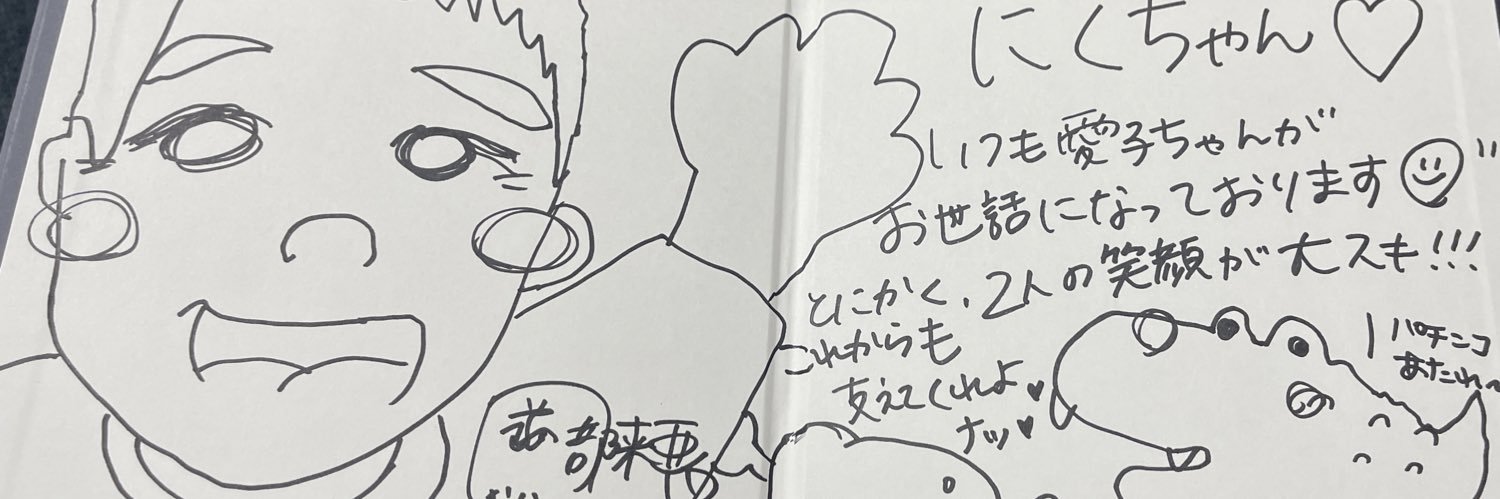 にくちゃん♡
いつも愛子ちゃんが
お世話になっております
とにかく、2人の笑顔が大スキ!!!
これからも
支えてくれよ♥
ナツ♥
パチンコ
あたれ〜
部来亜